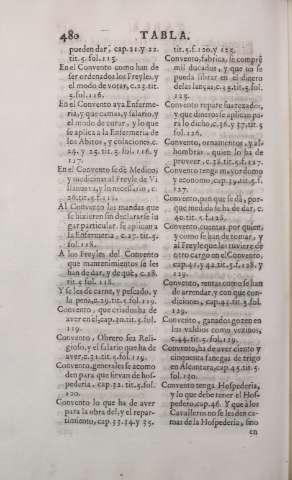 480 TABLA.
pueden dar, cap. 21. y 22.
tit. 5. fol. 115.
En el Convento como han de
ser ordenados los Freyles, y
el modo de votar, c. 23. tit.
5. fol. 116.
En el Convento aya Enfermeria,
y que camas, y salario, y
el modo de curar, y lo que
se aplica a la Enfermeria de
los Abitos, y colaciones. c.
24. y 25. tit. 5. fol. 116. y
117.
En el Convento se dè Medico,
y medicinas al Freyle de Villanueva,
y lo necessario, c.
26. tit. 5. f. 118.
Al Convento las mandas que
se hizieren sin declararse lugar
particular, se aplican a
la Enfermeria, c. 27. tit. 5.
fol. 118.
A los Freyles del Convento
que mantenimientos se les
han de dar, y de què, c. 28.
tit. 5. fol. 118.
Y se les dè carne, y pescado, y
la pena, c. 29. tit. 5. fol. 119.
Convento, que criados ha de
aver en el, cap. 30. tit. 5. fol.
119.
Convento, Obrero sea Religioso,
y el salario que ha de
aver, c. 31. tit. 5. fol. 119.
Convento, generales se acomoden
para que sirvan de hospederia,
cap. 32. tit. 5. fol.
120.
Convento lo que ha de aver
para la obra del, y el repartimiento,
cap. 33. 34. y 35.
tit. 5. f. 120. y 125.
Convento, fabrica, se compre
mil ducados, y que no se
pueda librar en el dinero
de las lanças, c. 35. tit. 5. fol.
125.
Convento repare su
y que dinero se aplican para
lo dicho, c. 36. y 37. tit. 5
fol. 126.
Convento, ornamentos, y alhombras,
quien lo ha de
proveer, c. 38. tit. 5. f. 127.
Convento tenga mayordomo
y economo, cap. 39. tit. 5. f.
127.
Convento, pan que se dà, porque
medida se ha de dar, c.
40. tit. 5. f. 128.
Convento cuentas por quien,
y como se han de tomar, y
al Freyle que las tuviere de
otro cargo en el Convento,
cap. 41. y 42. tit. 5. f. 128. y
129.
Convento, rentas como se han
de arrendar, y con que condiciones,
cap. 43. tit. 5. fol.
129.
Convento, ganados gozen en
los valdios como vezinos,
c. 44. tit. 5. fol. 129.
Convento, ha de aver ciento y
cinquenta fanegas de trigo
en Alcantara, cap. 45. tit. 5.
fol. 130.
Convento tenga Hospederia,
y lo que debe tener el Hospedero,
cap. 46. Y que à los
Cavalleros no se les den camas
de la Hospederia, sino
en